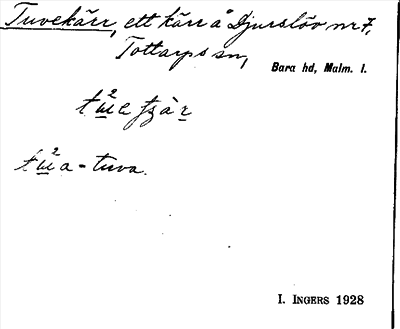 Tuvekärr, ett kärr å Djurslöv nr 7,
Tottarps sn,
Bara hd, Malm. l.
tuva.
I. INGERS 1928